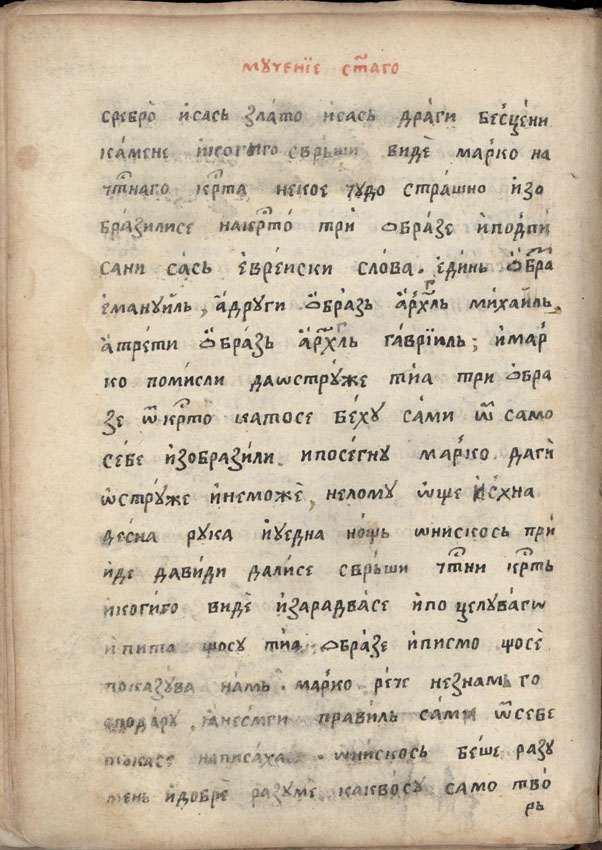 мꙋченїе ст҃аго
сребро̀ и҆сась зла́то и҆сась дра́ги бесце́ни
ка́мене и҆когиго сврьши видѐ ма́рко на
чт҃наго крт҃а некое чꙋдо стра́шно и҆зо
бра́зилисе накрт҃о́ три ѻ҆бра́зе и҆подпи
сани сась е҆вреиски сло́ва. е҆ди́нь ѻ҆́бра
еманꙋи́ль, а҆дрꙋги ѻ҆́бразь а҆рхг҃ль михаиль,
а҆трети ѻ҆́бра́зь а҆рхг҃ль га́врїиль; и҆мар
ко помисли даѡстрꙋ́же тиꙗ три ѻ҆бра
зе ѿ крт҃о катосе бехꙋ са́ми ѿ само
себе и҆зобрази́ли. и҆посегнꙋ ма́рко даги
ѡ҆стрꙋже и҆неможѐ, неломꙋ ѡ҆ще исхна
десна рꙋка и҆ꙋедна но́щь ѡнискось при
и҆де да́види далисе сврьши чт҃ни крт҃ь
и҆когиго видѐ и҆зарадвасе и҆по целꙋвагѡ
и҆пита щосꙋ тиа ѻ҆бра́зе и҆писмо щосѐ
показꙋва намь. ма́рко рече незнамь го
сподарꙋ, ꙗ҆несмги правиль са́ми ѿсебе
такасе написаха. ѡнискось беше разꙋ
мень и҆добрѐ разꙋме какво́сꙋ само тво
рь